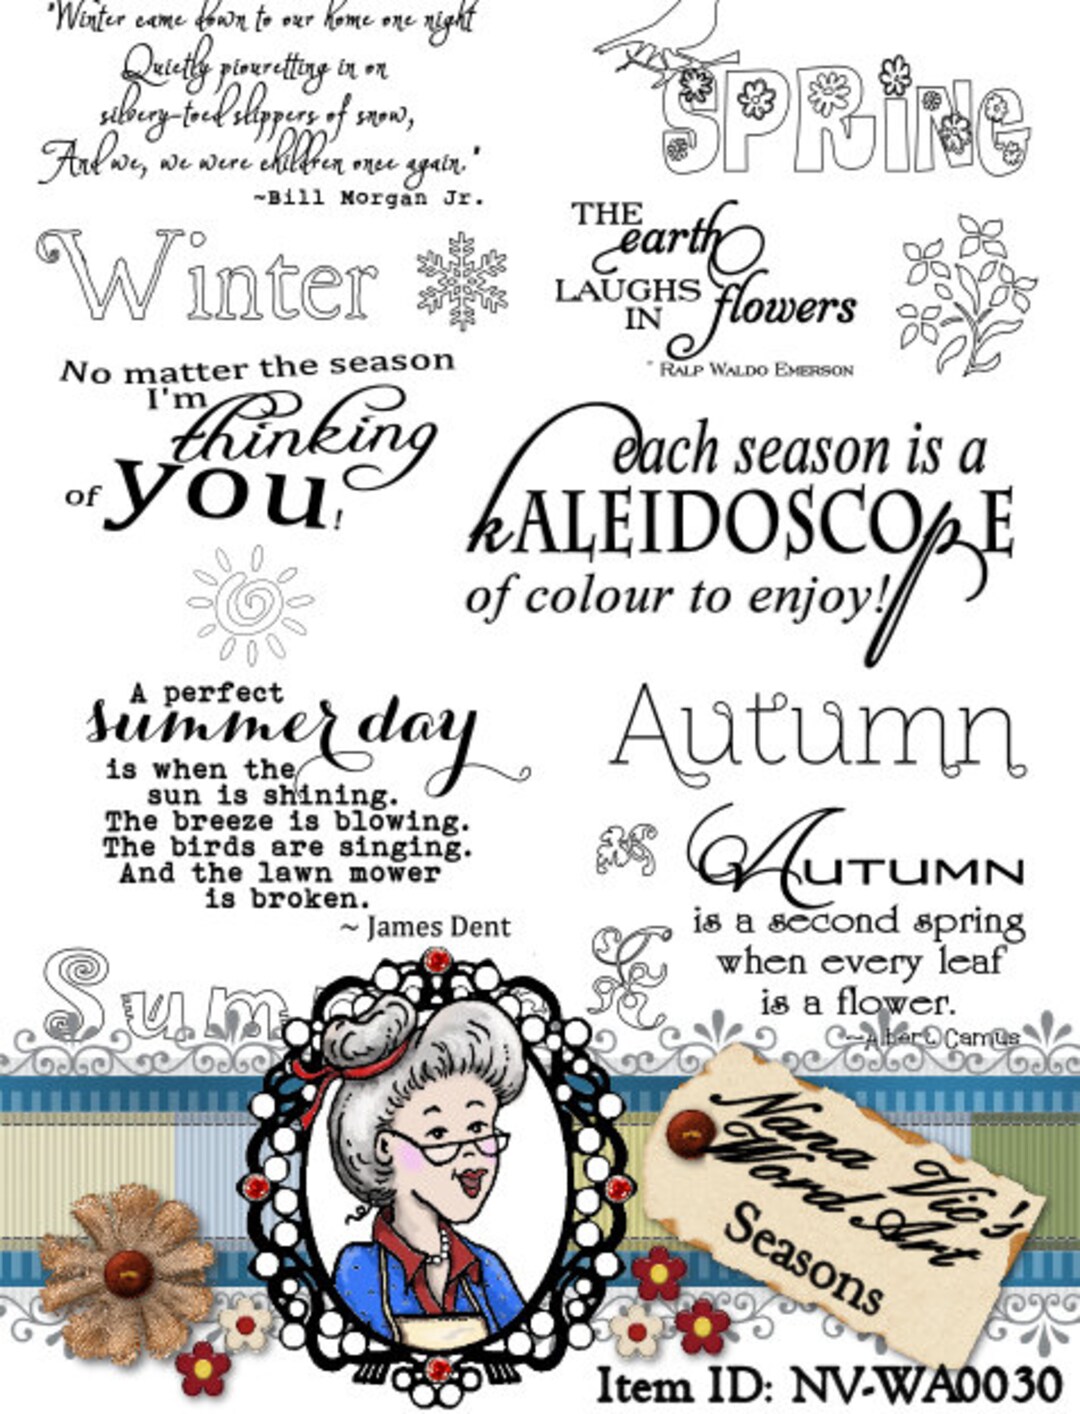 "Winter came down to our home one night
Quietly piouretting in on
silvery-toed slippers of snow,
And we, we were children once again."
~Bill Morgan Jr.
Winter
No matter the season
I'm thinking
of you!
A perfect
summer day
is when the
sun is shining.
The breeze is blowing.
The birds are singing.
And the lawn mower
is broken.
~ James Dent
Summ
SPRiNG
THE
earth
LAUGHS
IN flowers
~ RALP WALDO EMERSON
each season is a
kALEIDOSCOpE
of colour to enjoy!
Autumn
AUTUMN
is a second spring
when every leaf
is a flower.
~Albert Camus
Nana Vic's
Word Art
Seasons
Item ID: NV-WA0030